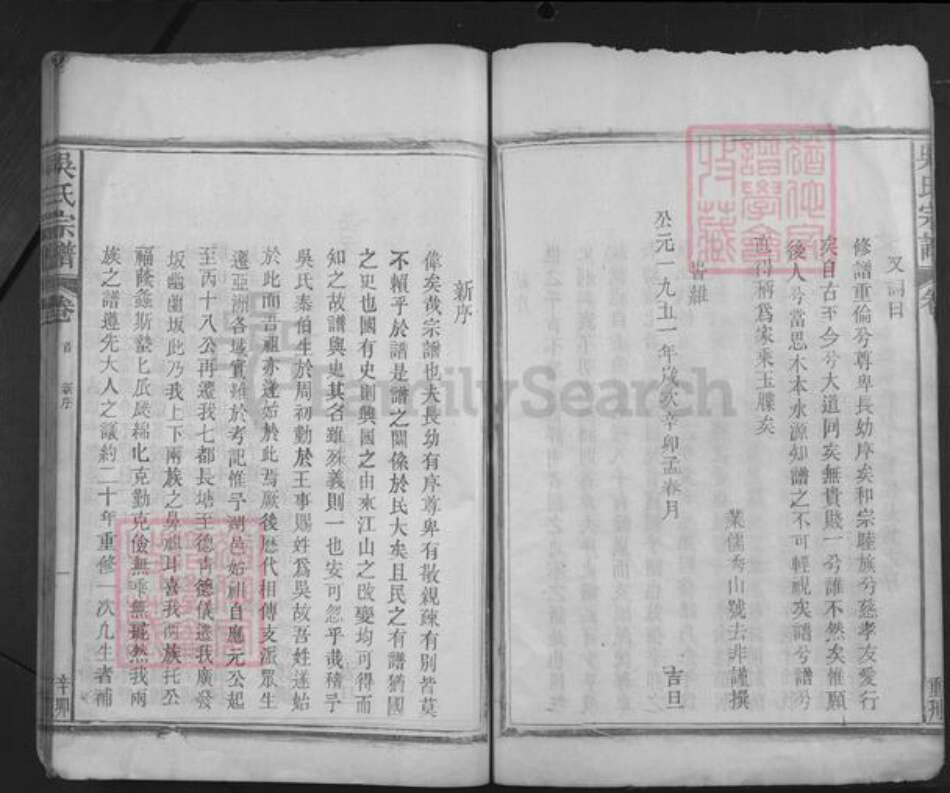 又詞曰
修譜重倫兮尊卑長幼序矣和宗睦族兮慈孝友愛行
矣自古至今兮大道同矣無貴賤一兮誰不然矣惟願
後人兮當思木本水源知譜之不可輕視矣譜兮譜兮
直得稱為家乘玉牒矣
業儒秀山號去非謹撰
皆維
公元一九五一年歲次辛卯孟春月
吉旦
吳氏宗譜
卷
首
新序
一
辛卯
新序
偉矣哉宗譜也夫長幼有序尊卑有敬親疎有別皆莫
不賴乎於譜是譜之關係於民大矣且民之有譜猶國
之史也國有史則興國之由來江山之改變均可得而
知之故譜與史其名雖殊義則一也安可忽乎哉稽予
吳氏泰伯生於周初勳於王事賜姓為吳故吾姓遂始
於此而吾祖亦遂始於此焉厥後歷代相傳支派眾生
遷亞洲各域實難於考記惟予潮邑始祖自應元公起
至丙十八公再遷我七都長塘至德青德儀遷我廣發
坂幽幽坂此乃我上下兩族之鼻祖耳喜我兩族托公
福蔭螽斯蟄比瓜瓞綿化克勤克儉無乖無疑然我兩
族之譜遵先大人之議約二十年重修一次九生者補
FamilySearch